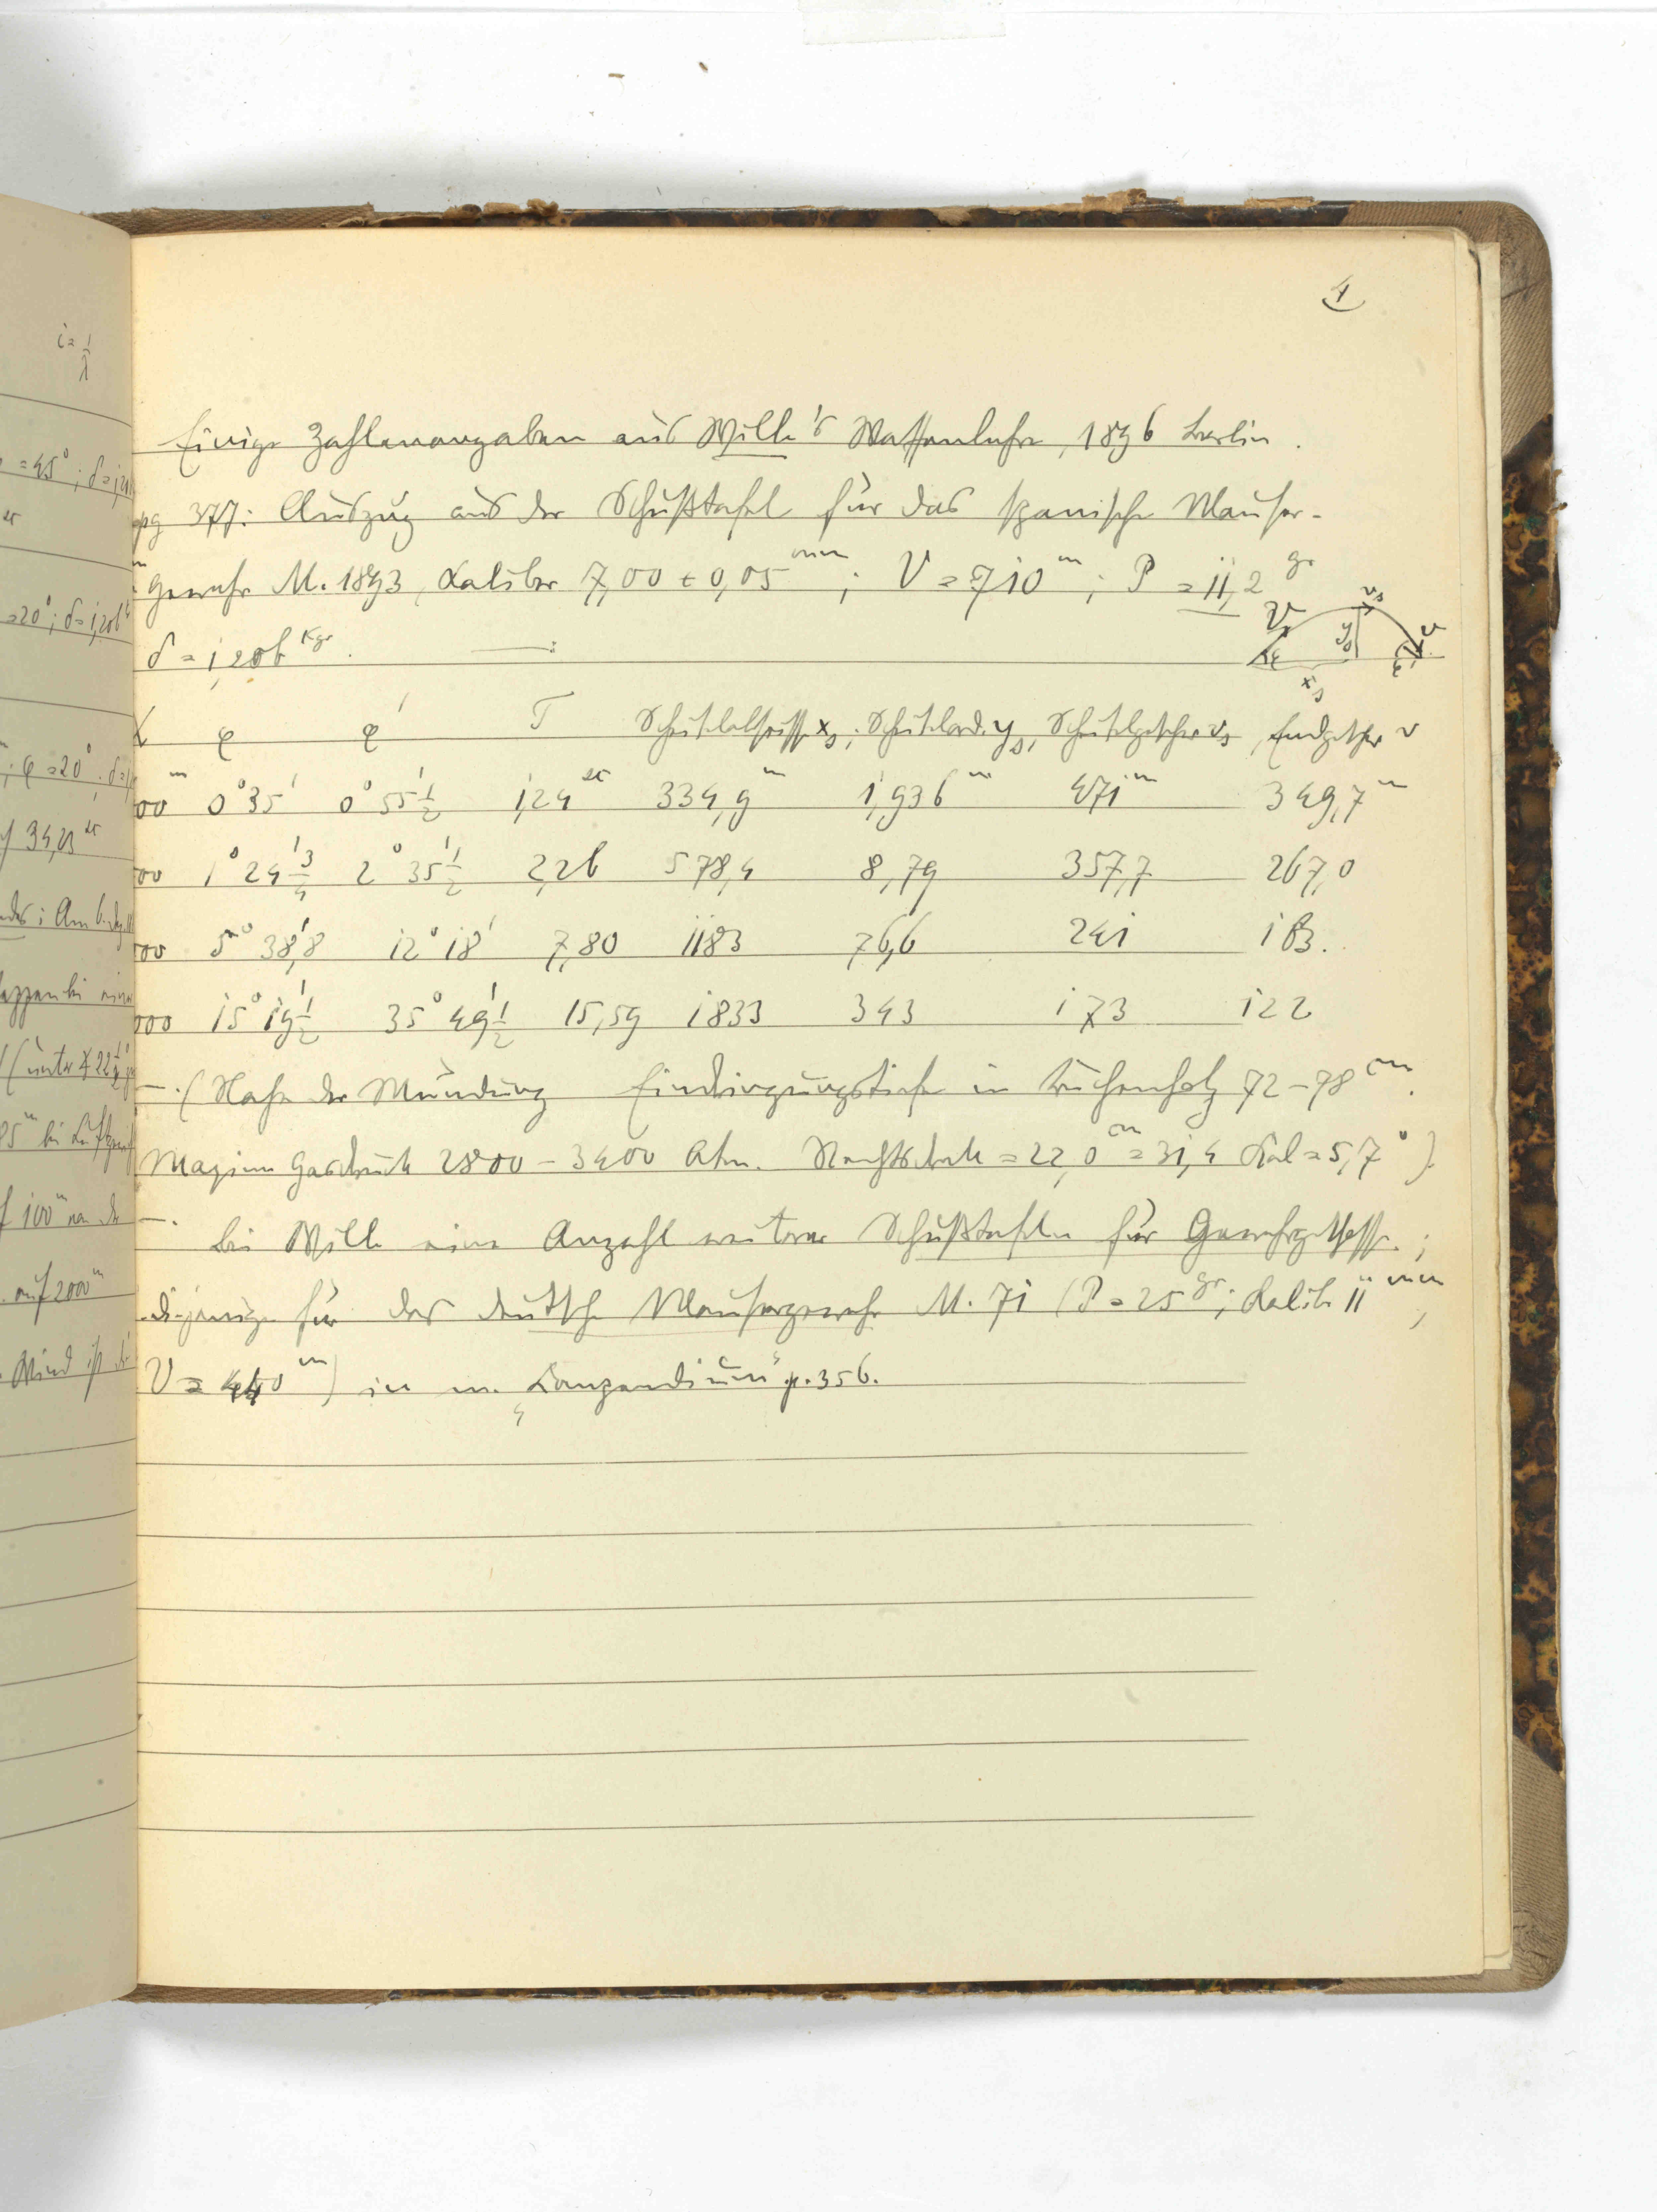 4
Einige Zahlenangaben aus Wille's Waffenlehre, 1896 Berlin.
pg 377: Auszug aus der Schußtafel für das spanische Mauser-
gewehr M. 1893, Kaliber 7,00 + 0,05 mm; V = 710 m; P = 11,2 gr
δ = 1,206 Kgr. —:
V vs v ys φ φ' xs
X φ φ' T Scheitelabscisse xs; Scheitelord. ys, Scheitelgeschw vs, Endgeschw v
00 m 0° 35' 0° 55 1/2' 1,24 sec 334,9 m 1,936 m 471 m 349,7 m
00 1° 24 3/4' 2° 35 1/2' 2,26 578,4 8,79 357,7 267,0
00 5° 38,8' 12° 18' 7,80 1183 76,6 241 163.
000 15° 19 1/2' 35° 49 1/2' 15,59 1833 343 173 122
—. (Nahe der Mündung Eindringungstiefe in Buchenholz 72–78 cm.
Maxim Gasdruck 2800 – 3400 Atm. = 22,0 cm = 31,4 Kal = 5,7°)
—. Bei Wille eine Anzahl weiterer Schußtafeln für Gewehrgeschosse.;
diejenige für das deutsche Mausergewehr M. 71 (P = 25 gr; Kalib. 11 mm,
V = 440 m) in m. „Compendium" p. 356.
i = 1/λ
= 45°; δ = 1,20
= 20°; δ = 1,206
; φ = 20°; δ = 1
34,23 sec
(unter ∢ 22 1/2°
85 m bei
100 m
auf 2000 m
Wind ist